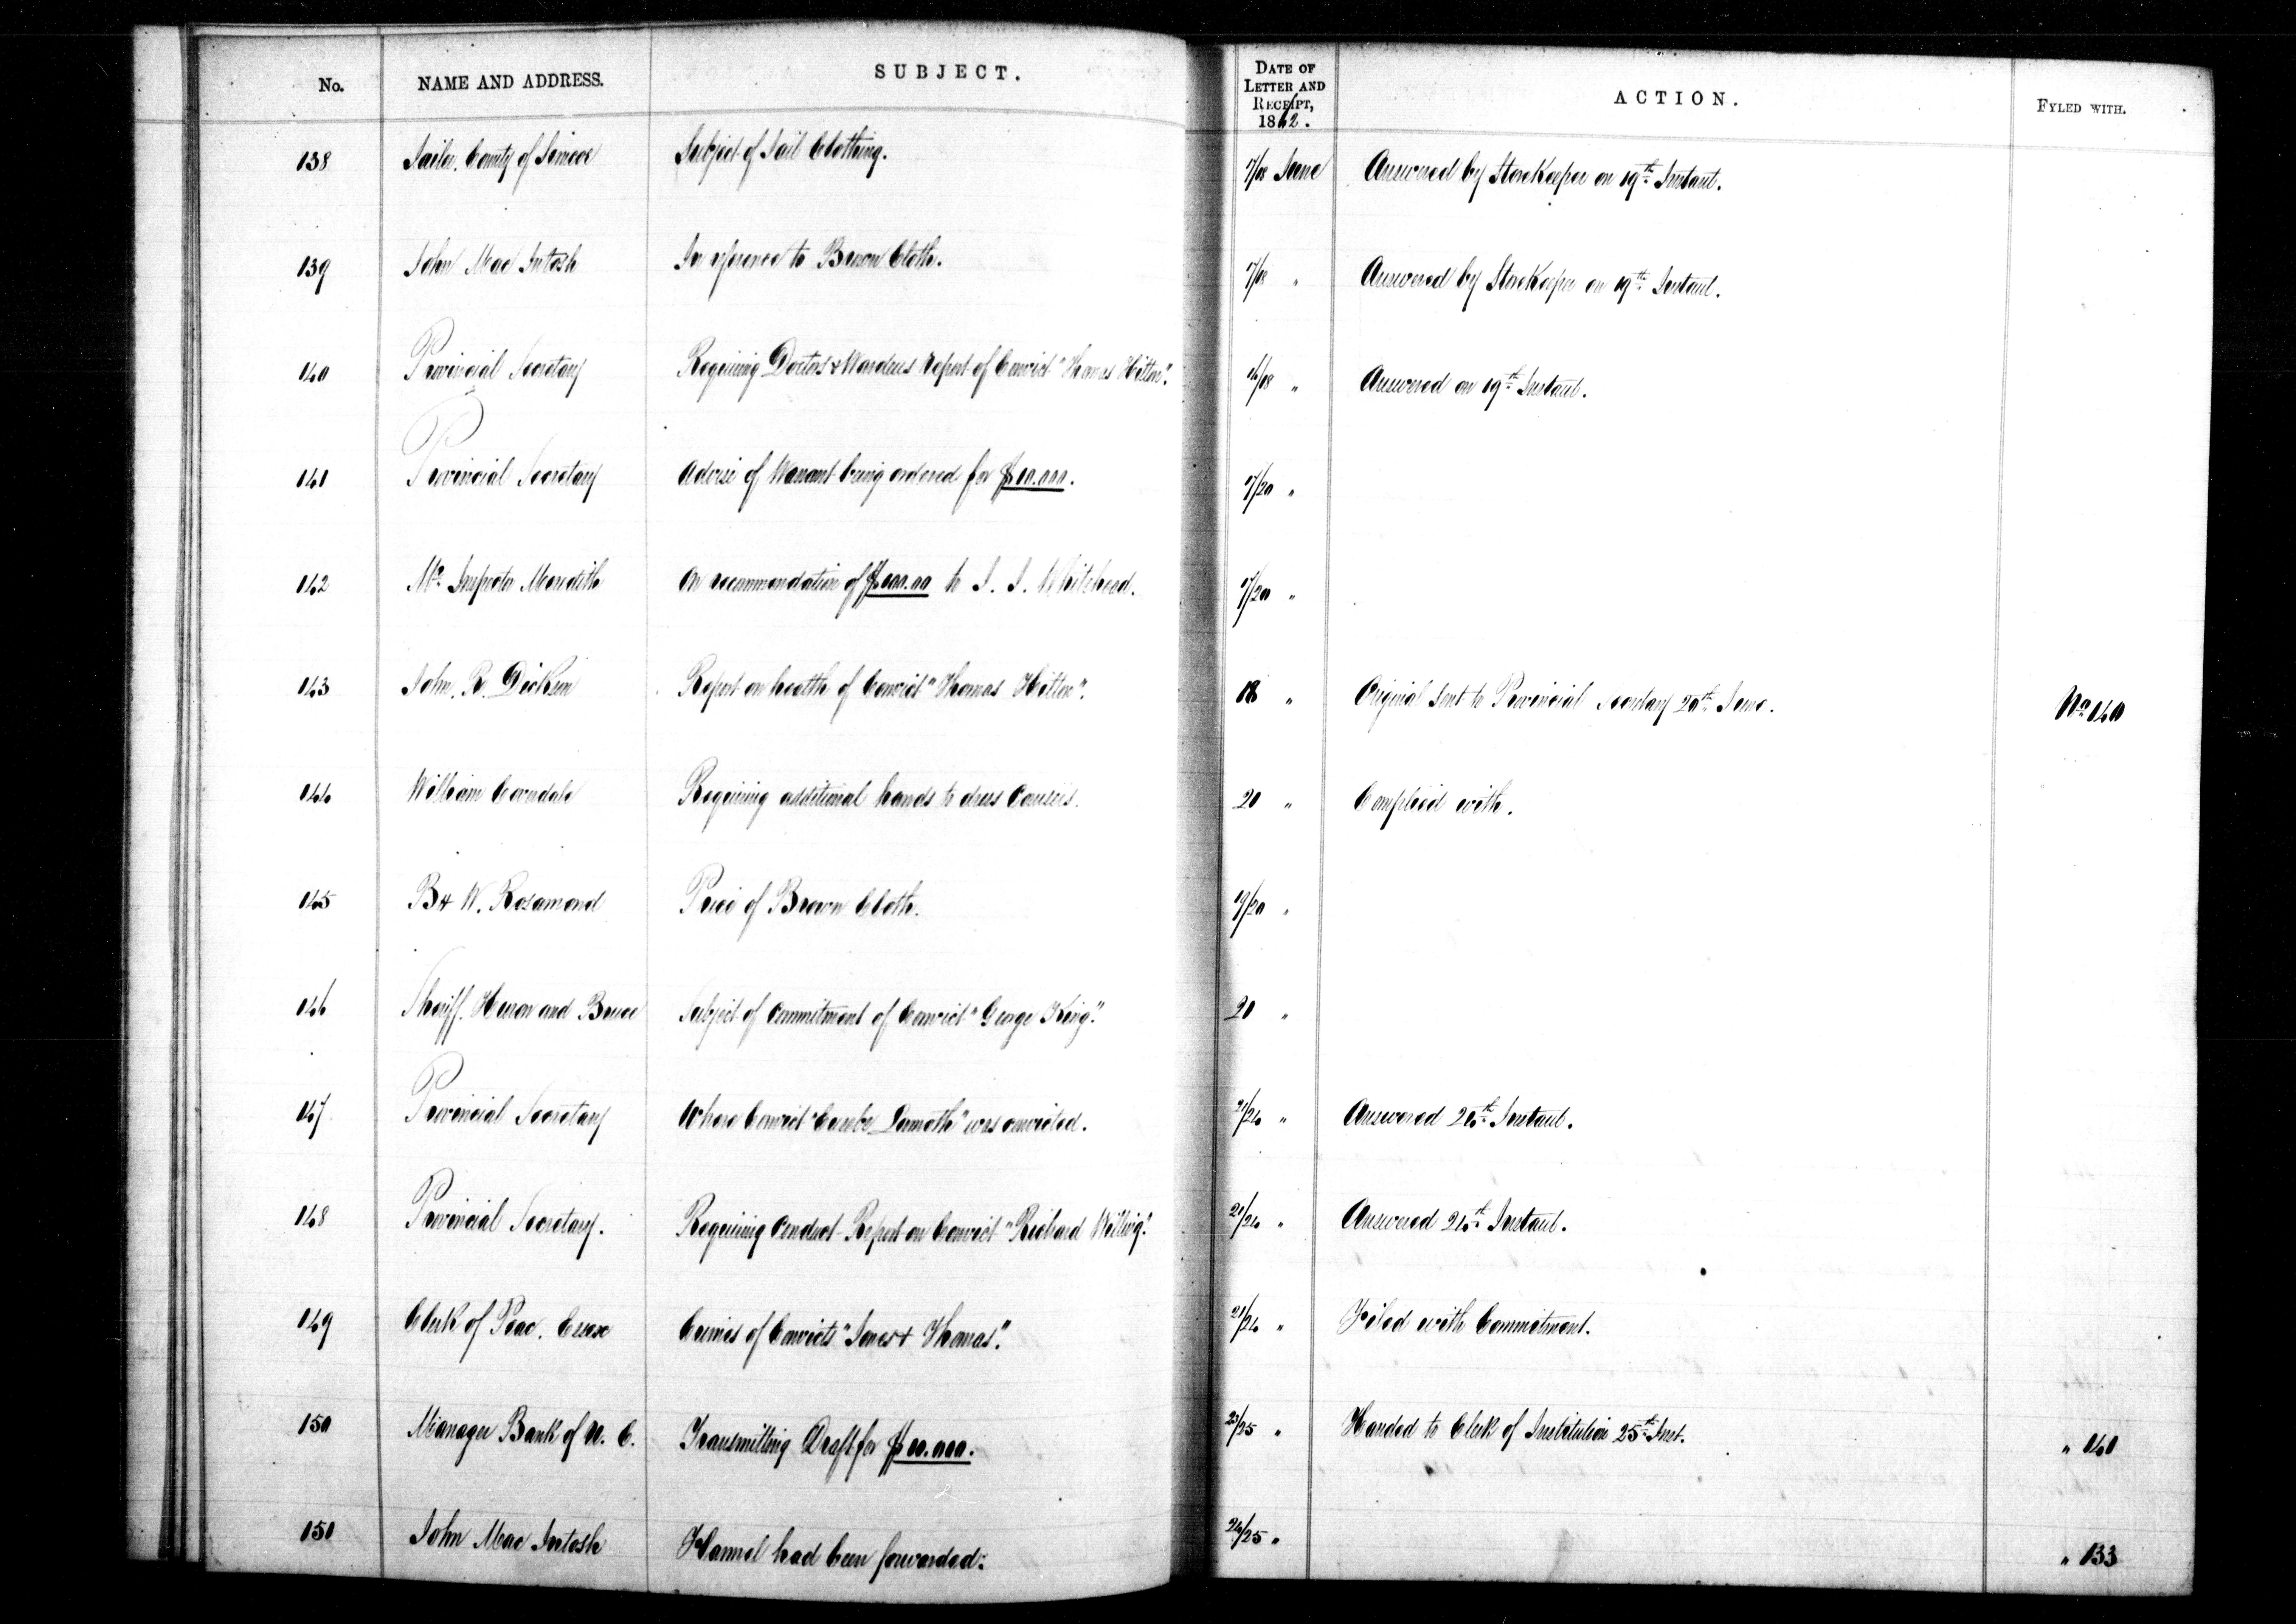 No. NAME AND ADDRESS. SUBJECT. DATE OF LETTER AND RECEIPT, 1862. ACTION. FYLED WITH.
138 Jailer, County of Simcoe Subject of Jail Clothing. 17/18 June Answered by StoreKeeper on 19th Instant.
139 John Mac Intosh In reference to Brown Cloth. 17/18 " Answered by StoreKeeper on 19th Instant.
140 Provincial Secretary Requiring Doctors & Wardens report of Convict "Thomas Hilton". 16/18 " Answered on 19th Instant.
141 Provincial Secretary Advise of Warrant being ordered for $10.000. 17/20 "
142 Mr Inspector Meredith On recommendation of $100.00 to J. J. Whitehead. 17/20 "
143 John. R. Dickson Report on health of Convict "Thomas Hilton". 18 " Original sent to Provincial Secretary 20th June. No 140
144 William Coverdale Requiring additional hands to dress 20 " Complied with.
145 B & W. Rosamond Price of Brown Cloth. 19/20 "
146 Sheriff. Huron and Bruce Subject of Commitment of Convict "George King". 20 "
147 Provincial Secretary Where Convict Lamoth" was convicted. 21/24 " Answered 24th Instant.
148 Provincial Secretary. Requiring Conduct Report on Convict "Richard 21/24 " Answered 24th Instant.
149 Clerk of Peac. Essex Crimes of Convicts "Jones & Thomas". 21/24 " Filed with Commitment.
150 Manager Bank of U. C. Transmitting Draft for $10.000. 23/25 " Handed to Clerk of Institution 25th Inst. " 141
151 John Mac Intosh Flannel had been forwarded. 24/25 " " 133